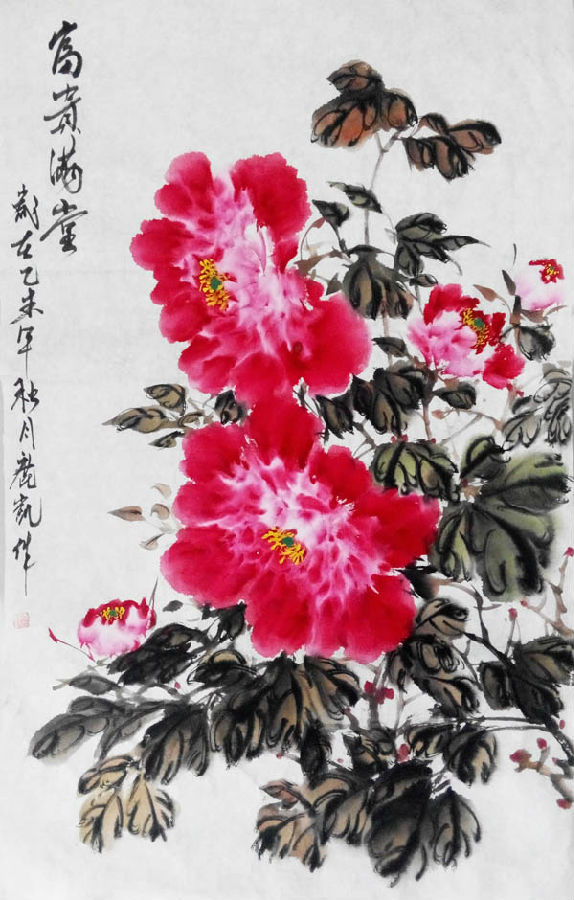 富贵满堂
歲在乙未年秋月鹿凯作